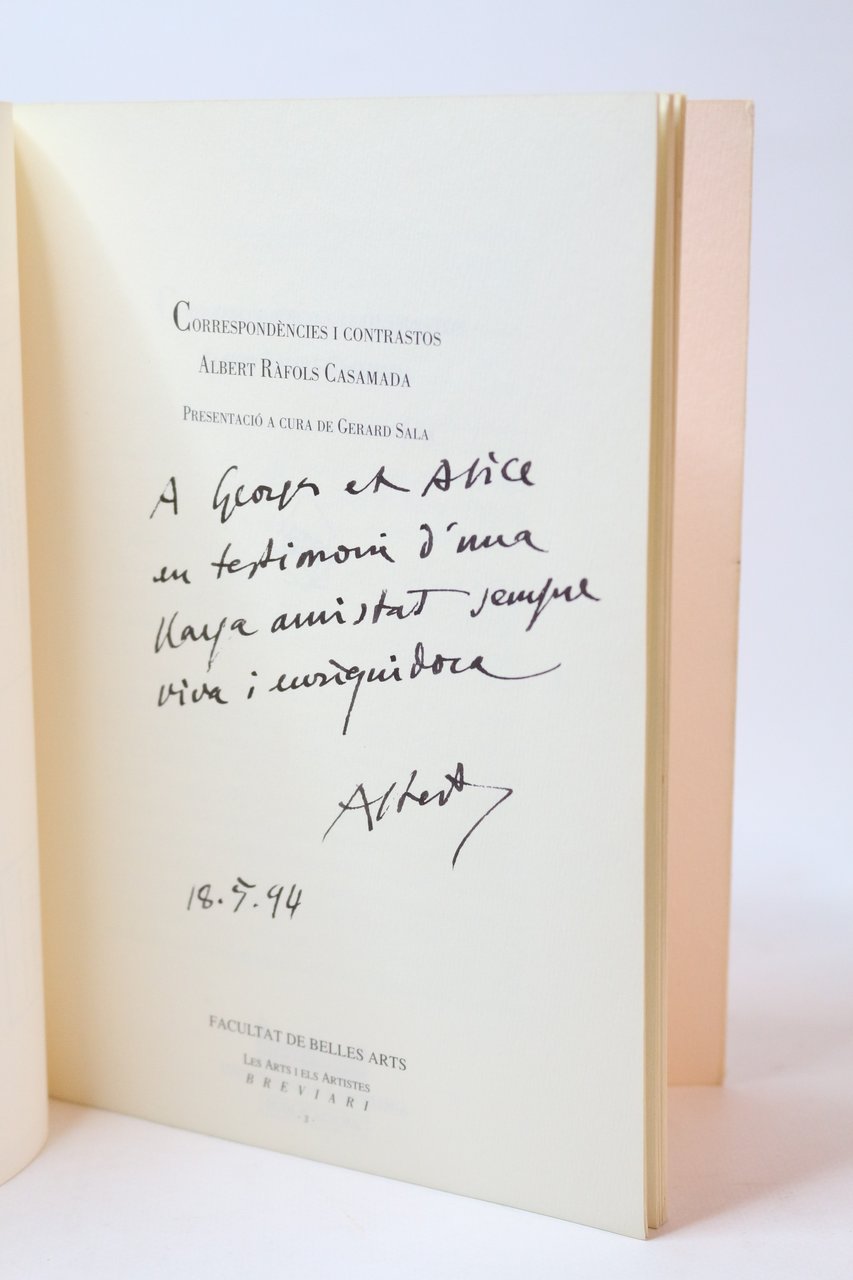 CORRESPONDÈNCIES I CONTRASTOS
ALBERT RÀFOLS CASAMADA
PRESENTACIÓ A CURA DE GERARD SALA
A Georges et Alice
en testimoni d'una
llarga amistat sempre
viva i enriquidora
Albert
18.5.94
FACULTAT DE BELLES ARTS
LES ARTS I ELS ARTISTES
BREVIARI
· 3 ·